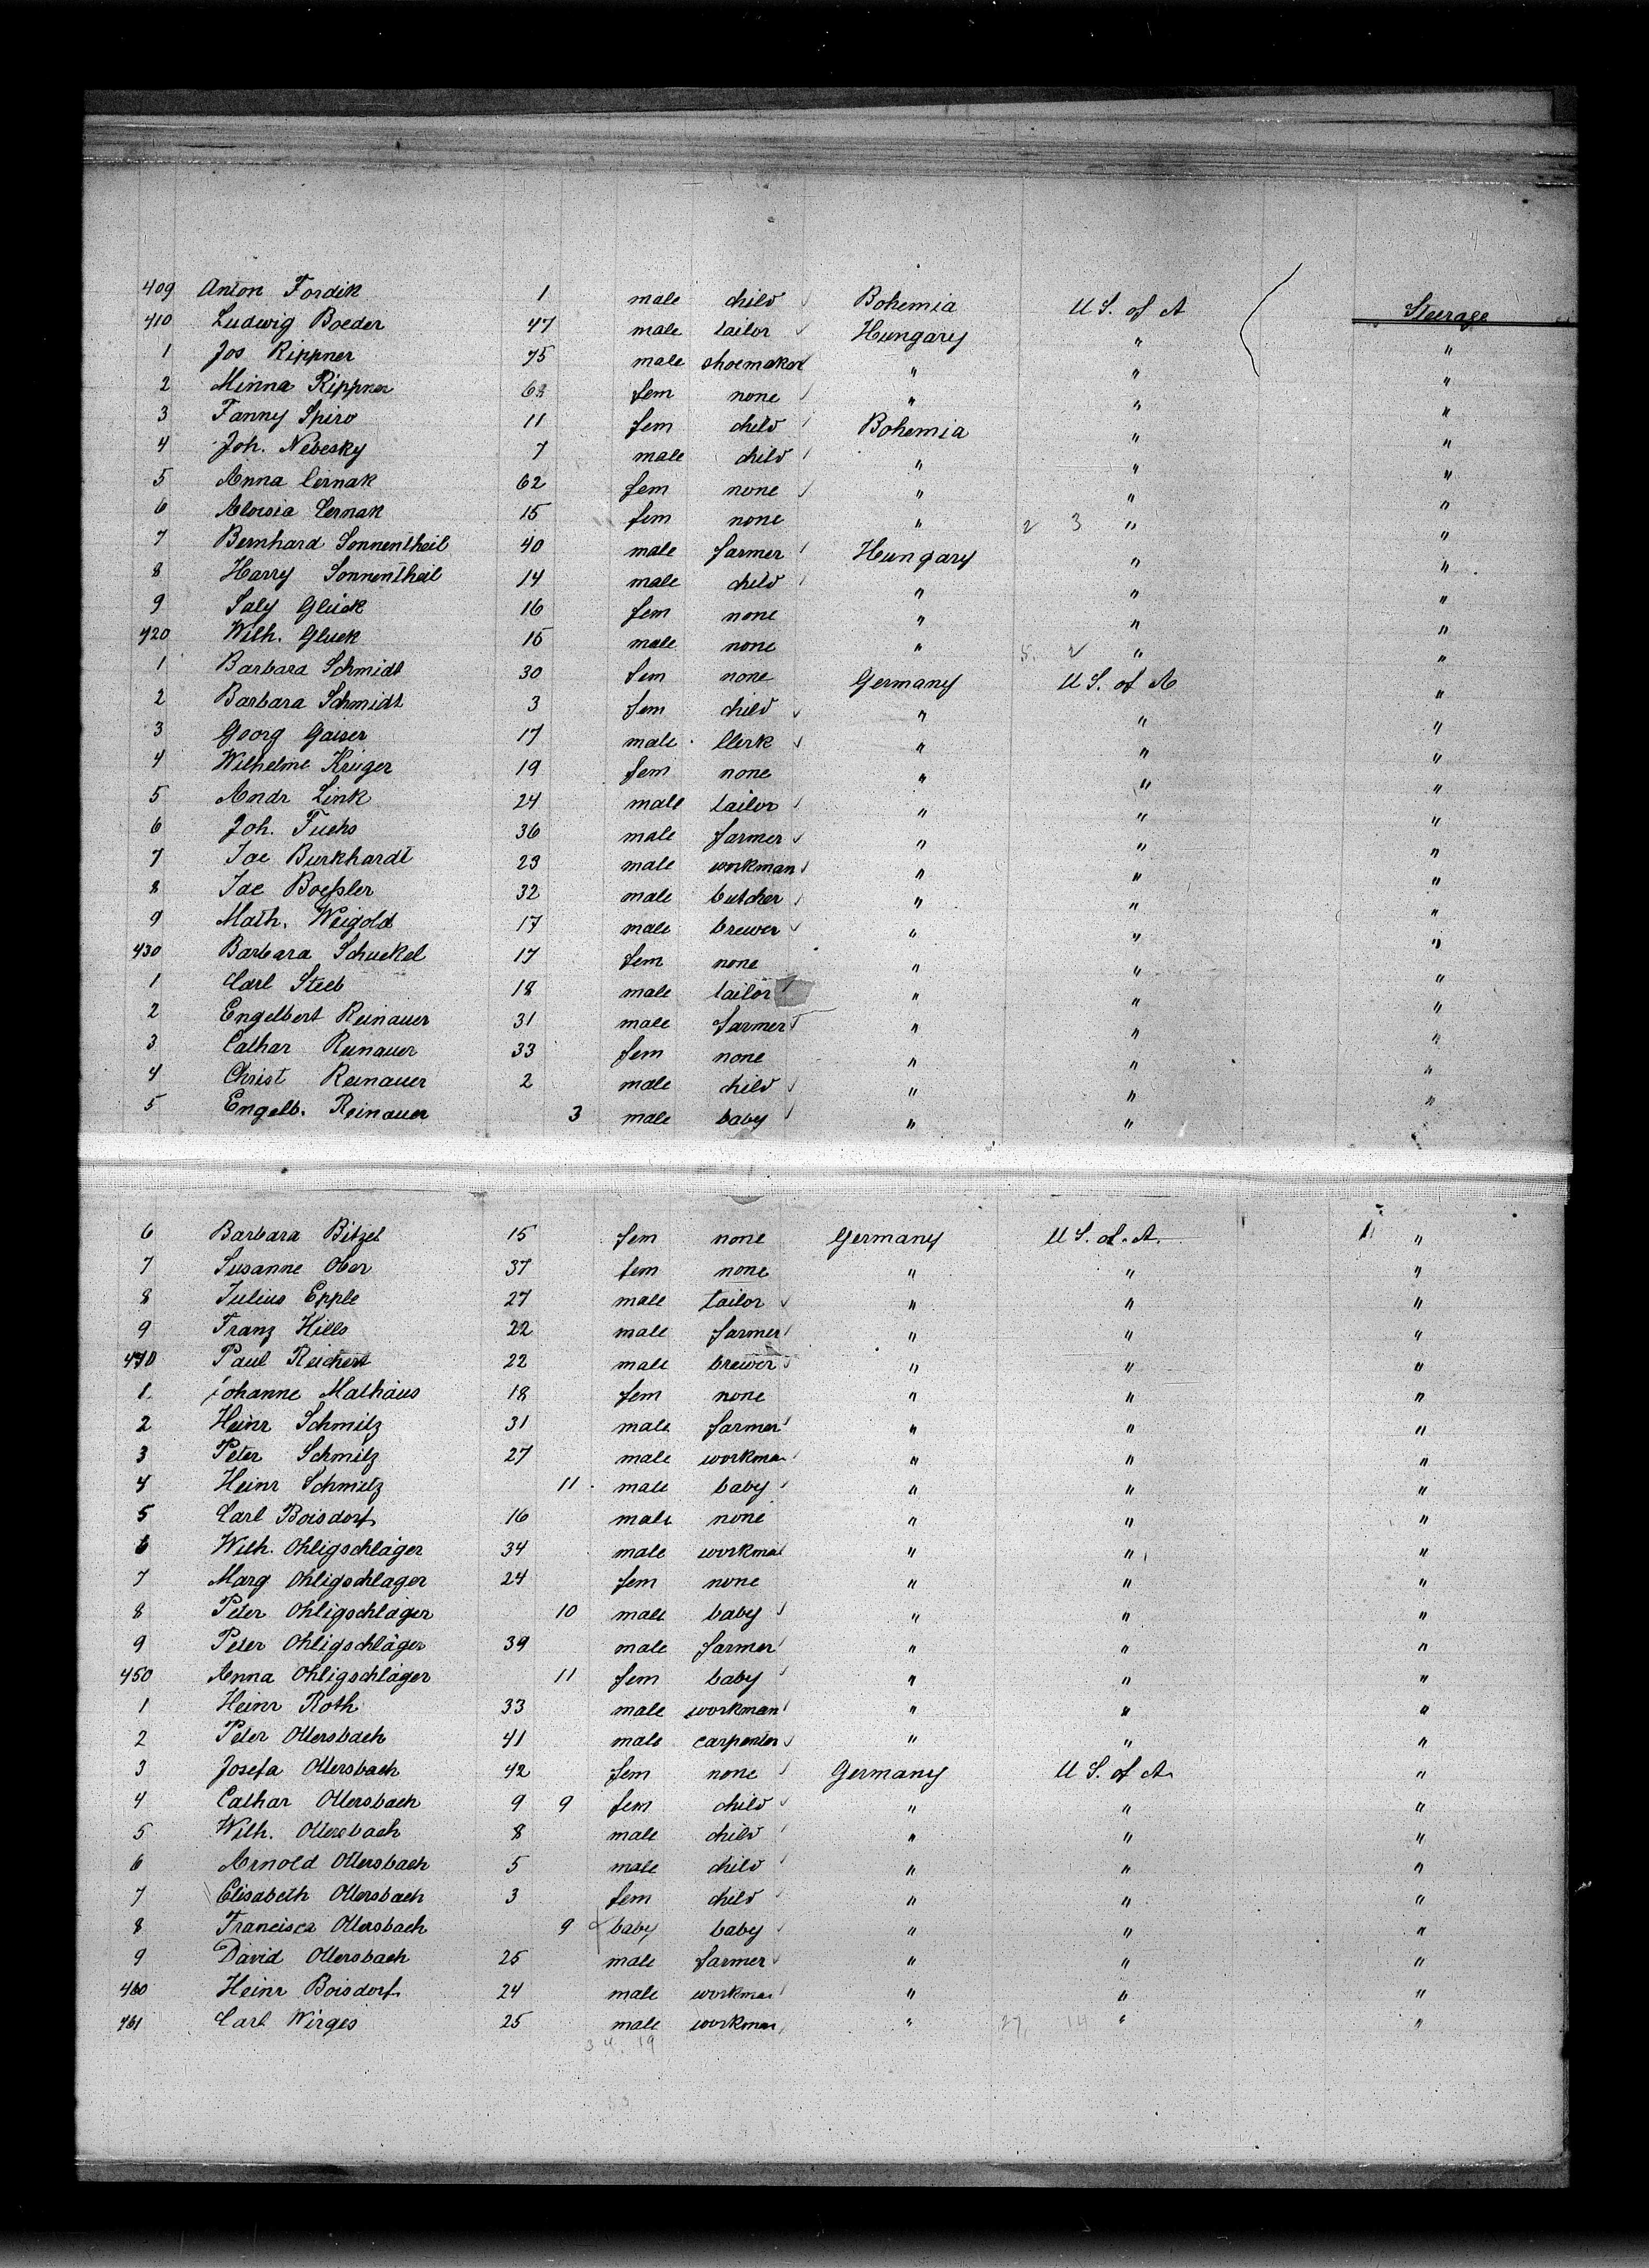 409 Anton Fordik 1 male child Bohemia U S. of A Steerage
410 Ludwig Boeder 47 male tailor Hungary " "
1 Jos Rippner 75 male shoemaker " " "
2 Minna Rippner 63 fem none " " "
3 Fanny Spiro 11 fem child Bohemia " "
4 Joh. Nebesky 7 male child " " "
5 Anna Cernak 62 fem none " " "
6 Aloisia Cernak 15 fem none " 2 3 " "
7 Bernhard Sonnentheil 40 male farmer Hungary " "
8 Harry Sonnentheil 14 male child " " "
9 Saly Glück 16 fem none " " "
420 Wilh. Gluck 15 male none " 5. 2 " "
1 Barbara Schmidt 30 fem none Germany U S. of A "
2 Barbara Schmidt 3 fem child " " "
3 Georg Gaiser 17 male Clerk " " "
4 Wilhelme Krüger 19 fem none " " "
5 Andr Link 24 male tailor " " "
6 Joh. Fuchs 36 male farmer " " "
7 Jac Burkhardt 23 male workman " " "
8 Jac Boeßler 32 male butcher " " "
9 Math. Weigold 17 male brewer " " "
430 Barbara Schuekel 17 fem none " " "
1 Carl Steeb 18 male tailor " " "
2 Engelbert Reinauer 31 male farmer " " "
3 Cathar Reinauer 33 fem none " " "
4 Christ Reinauer 2 male child " " "
5 Engelb. Reinauer 3 male baby " " "
6 Barbara Bitzel 15 fem none Germany U S. of. A. "
7 Susanne Ober 37 fem none " " "
8 Julius Epple 27 male tailor " " "
9 Franz Hills 22 male farmer " " "
440 Paul Reichert 22 male brewer " " "
1. Johanne Mathäus 18 fem none " " "
2 Heinr Schmitz 31 male farmer " " "
3 Peter Schmitz 27 male workman " " "
4 Heinr Schmitz 11 male baby " " "
5 Carl Boisdorf 16 male none " " "
6 Wilh. Ohligschläger 34 male workman " " "
7 Marg Ohligschlager 24 fem none " " "
8 Peter Ohligschläger 10 male baby " " "
9 Peter Ohligschläger 39 male farmer " " "
450 Anna Ohligschläger 11 fem baby " " "
1 Heinr Roth 33 male workman " " "
2 Peter Ottersbach 41 male carpenter " " "
3 Josefa Ottersbach 42 fem none Germany U S. of A. "
4 Cathar Ottersbach 9 9 fem child " " "
5 Wilh. Ottersbach 8 male child " " "
6 Arnold Ottersbach 5 male child " " "
7 Elisabeth Ottersbach 3 fem child " " "
8 Francisca Ottersbach 9 baby baby " " "
9 David Ottersbach 25 male farmer " " "
460 Heinr Boisdorf 24 male workman " " "
461 Carl Wirges 25 male workman " 27, 14 " "
34. 19